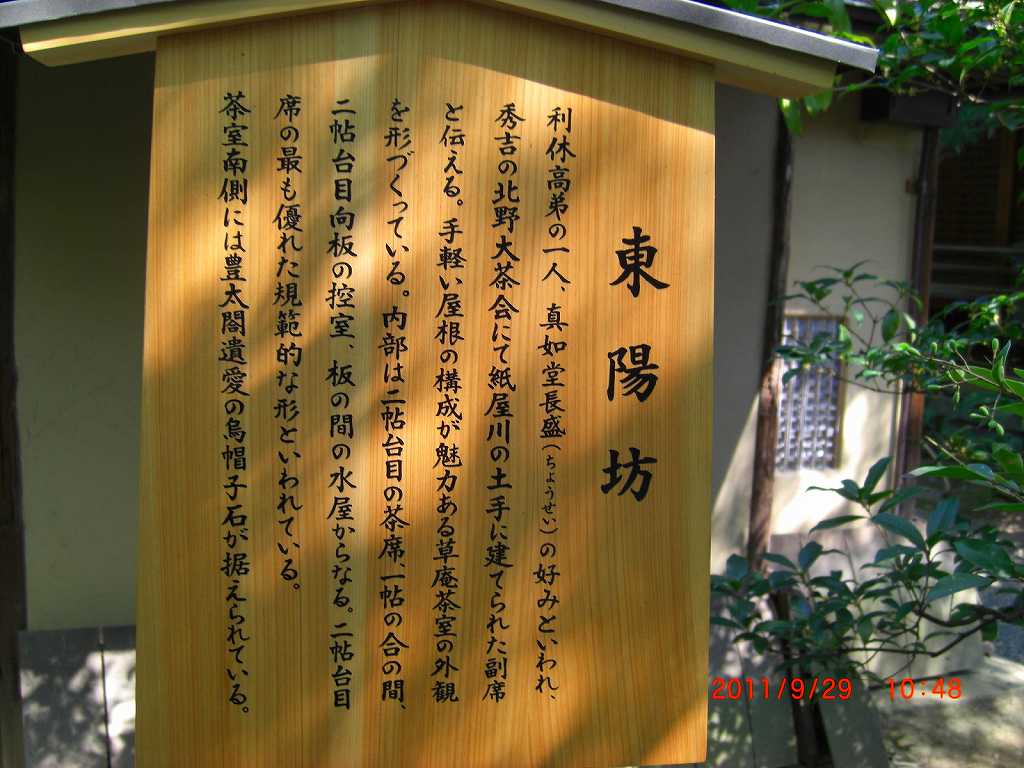 東陽坊
利休高弟の一人、真如堂長盛(ちょうせい)の好みといわれ、
秀吉の北野大茶会にて紙屋川の土手に建てられた副席
と伝える。手軽い屋根の構成が魅力ある草庵茶室の外観
を形づくっている。内部は二帖台目の茶席、一帖の合の間、
二帖台目向板の控室、板の間の水屋からなる。二帖台目
席の最も優れた規範的な形といわれている。
茶室南側には豊太閤遺愛の烏帽子石が据えられている。
2011/9/29 10:48